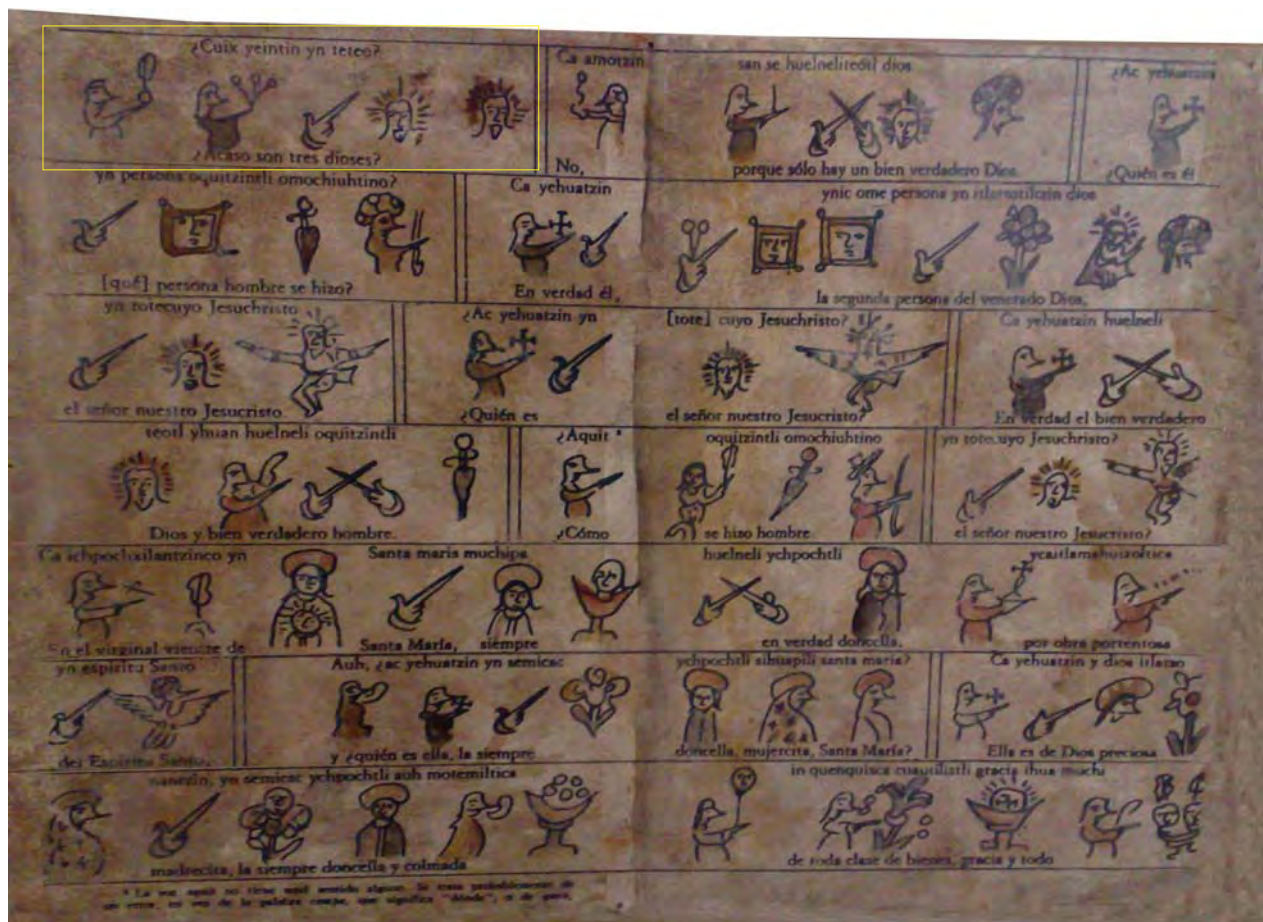 ¿Cuix yeintin yn teteo?
¿Acaso son tres dioses?
Ca amotzin
No,
san se huelneliteotl dios
porque sólo hay un bien verdadero Dios.
¿Ac yehuatzin
¿Quién es él
yn persona oquitzintli omochiuhtino?
[qué] persona hombre se hizo?
Ca yehuatzin
En verdad él,
ynic ome persona yn itlasotilzin dios
la segunda persona del venerado Dios,
yn totecuyo Jesuchristo
el señor nuestro Jesucristo.
¿Ac yehuatzin yn
¿Quién es
[tote] cuyo Jesuchristo?
el señor nuestro Jesucristo?
Ca yehuatzin huelneli
En verdad el bien verdadero
teotl yhuan huelneli oquitzintli
Dios y bien verdadero hombre.
¿Aquit *
¿Cómo
oquitzintli omochiuhtino
se hizo hombre
yn totecuyo Jesuchristo?
el señor nuestro Jesucristo?
Ca ichpochxilantzinco yn
En el virginal vientre de
Santa maria muchipa
Santa María, siempre
huelneli ychpochtli
en verdad doncella,
ycatlamahuizoltica
por obra portentosa
yn espiritu Santo
del Espíritu Santo.
Auh, ¿ac yehuatzin yn semicac
y ¿quién es ella, la siempre
ychpochtli sihuapili santa maria?
doncella, mujercita, Santa María?
Ca yehuatzin y dios itlaso
Ella es de Dios preciosa
nantzin, yn semicac ychpochtli auh motemiltica
madrecita, la siempre doncella y colmada
in quenquisca cuautilistli gracia ihua muchi
de toda clase de bienes, gracia y todo
* La voz aquit no tiene aquí sentido alguno. Se trata probablemente de
un error, en vez de la palabra campe, que significa "dónde", o de quen,